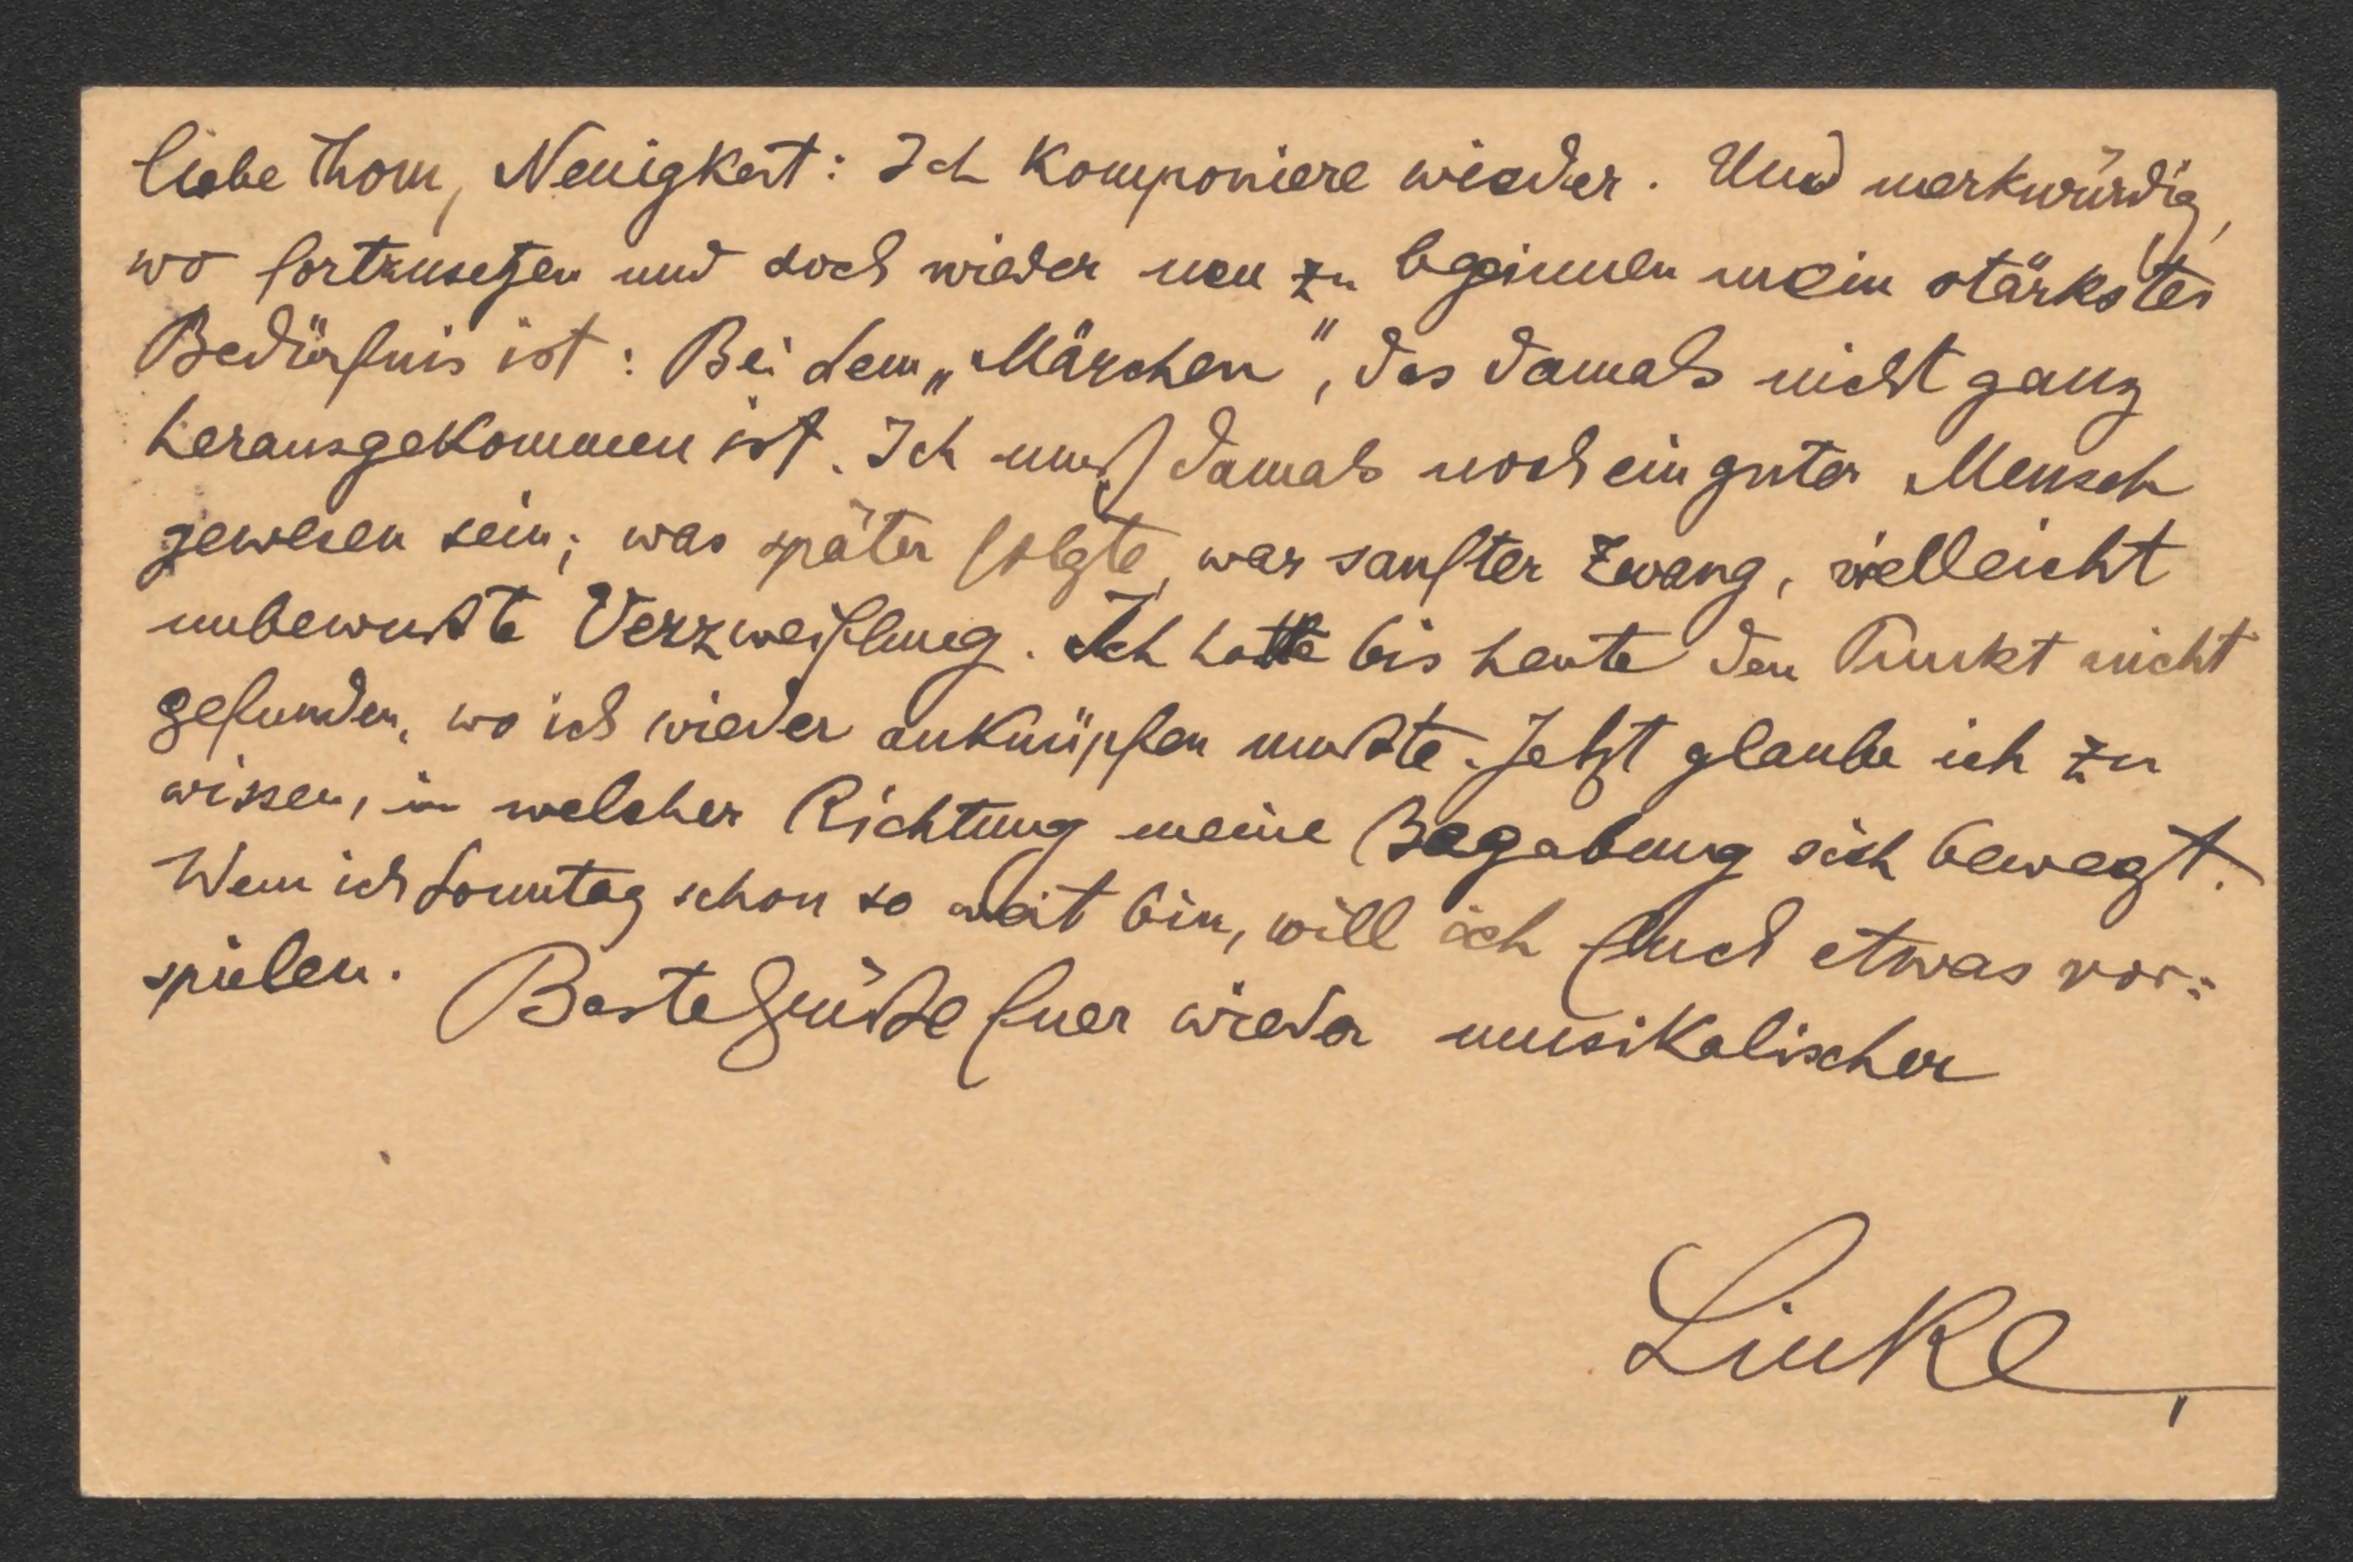 liebe Thom, Neuigkeit: Ich komponiere wieder. Und merkwürdig,
wo fortzusetzen und doch wieder neu zu beginnen mein stärkstes
Bedürfnis ist: Bei dem „Märchen", das damals nicht ganz
herausgekommen ist. Ich muß damals noch ein guter Mensch
gewesen sein; was später folgte, war sanfter Zwang, vielleicht
unbewußte Verzweiflung. Ich hatte bis heute den Punkt nicht
gefunden, wo ich wieder anknüpfen mußte. Jetzt glaube ich zu
wissen, in welcher Richtung meine Begabung sich bewegt.
Wenn ich Sonntag schon so weit bin, will ich Euch etwas vor-
spielen. Beste Grüße Euer wieder musikalischer
Linke